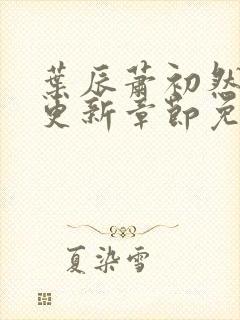 葉辰蕭初然
更新章節免
夏染雪